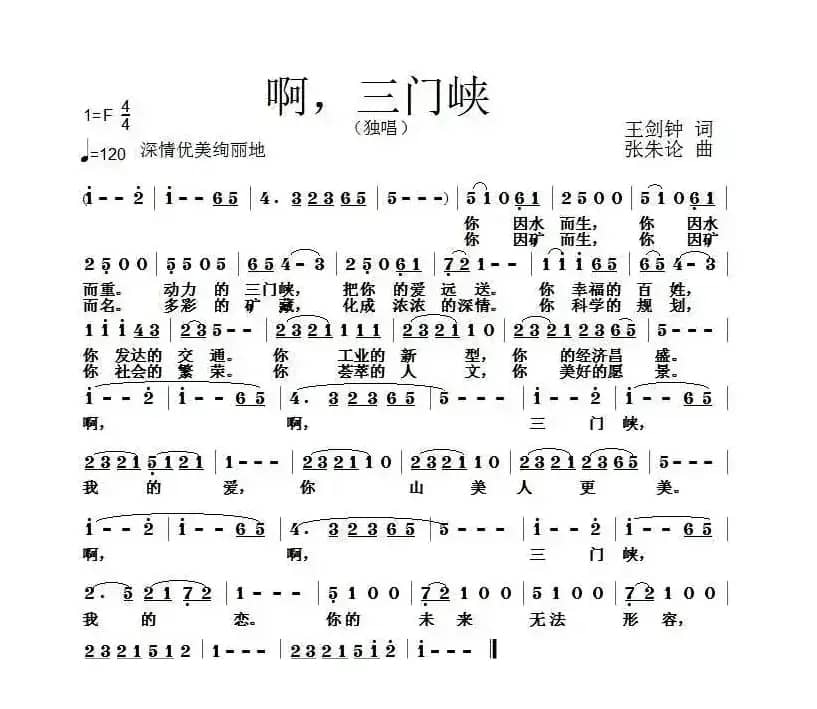 啊，三门峡
（独唱）
1=F 4/4
王剑钟 词
♩=120 深情优美绚丽地
张朱论 曲
(i - - 2 | i - - 6 5 | 4. 3 2 3 6 5 | 5 - - -) | 5 1 0 6 1 | 2 5 0 0 | 5 1 0 6 1 |
你 因水 而生， 你 因水
你 因矿 而生， 你 因矿
2 5 0 0 | 5 5 0 5 | 6 5 4 - 3 | 2 5 0 6 1 | 7 2 1 - - | i i i 6 5 | 6 5 4 - 3 |
而重。 动力 的 三门峡， 把你 的 爱 远 送。 你 幸福的 百 姓，
而名。 多彩 的 矿 藏， 化成 浓浓 的深情。 你 科学的 规 划，
i i i 4 3 | 2 3 5 - - | 2 3 2 1 1 1 1 | 2 3 2 1 1 0 | 2 3 2 1 2 3 6 5 | 5 - - - |
你 发达的 交 通。 你 工业的 新 型， 你 的经济昌 盛。
你 社会的 繁 荣。 你 荟萃的 人 文， 你 美好的愿 景。
i - - 2 | i - - 6 5 | 4. 3 2 3 6 5 | 5 - - - | i - - 2 | i - - 6 5 |
啊， 啊， 三 门 峡，
2 3 2 1 5 1 2 1 | 1 - - - | 2 3 2 1 1 0 | 2 3 2 1 1 0 | 2 3 2 1 2 3 6 5 | 5 - - - |
我 的 爱， 你 山 美 人 更 美。
i - - 2 | i - - 6 5 | 4. 3 2 3 6 5 | 5 - - - | i - - 2 | i - - 6 5 |
啊， 啊， 三 门 峡，
2. 5 2 1 7 2 | 1 - - - | 5 1 0 0 | 7 2 1 0 0 | 5 1 0 0 | 7 2 1 0 0 |
我 的 恋。 你的 未 来 无法 形 容，
2 3 2 1 5 1 2 | 1 - - - | 2 3 2 1 5 i 2 | i - - - ‖